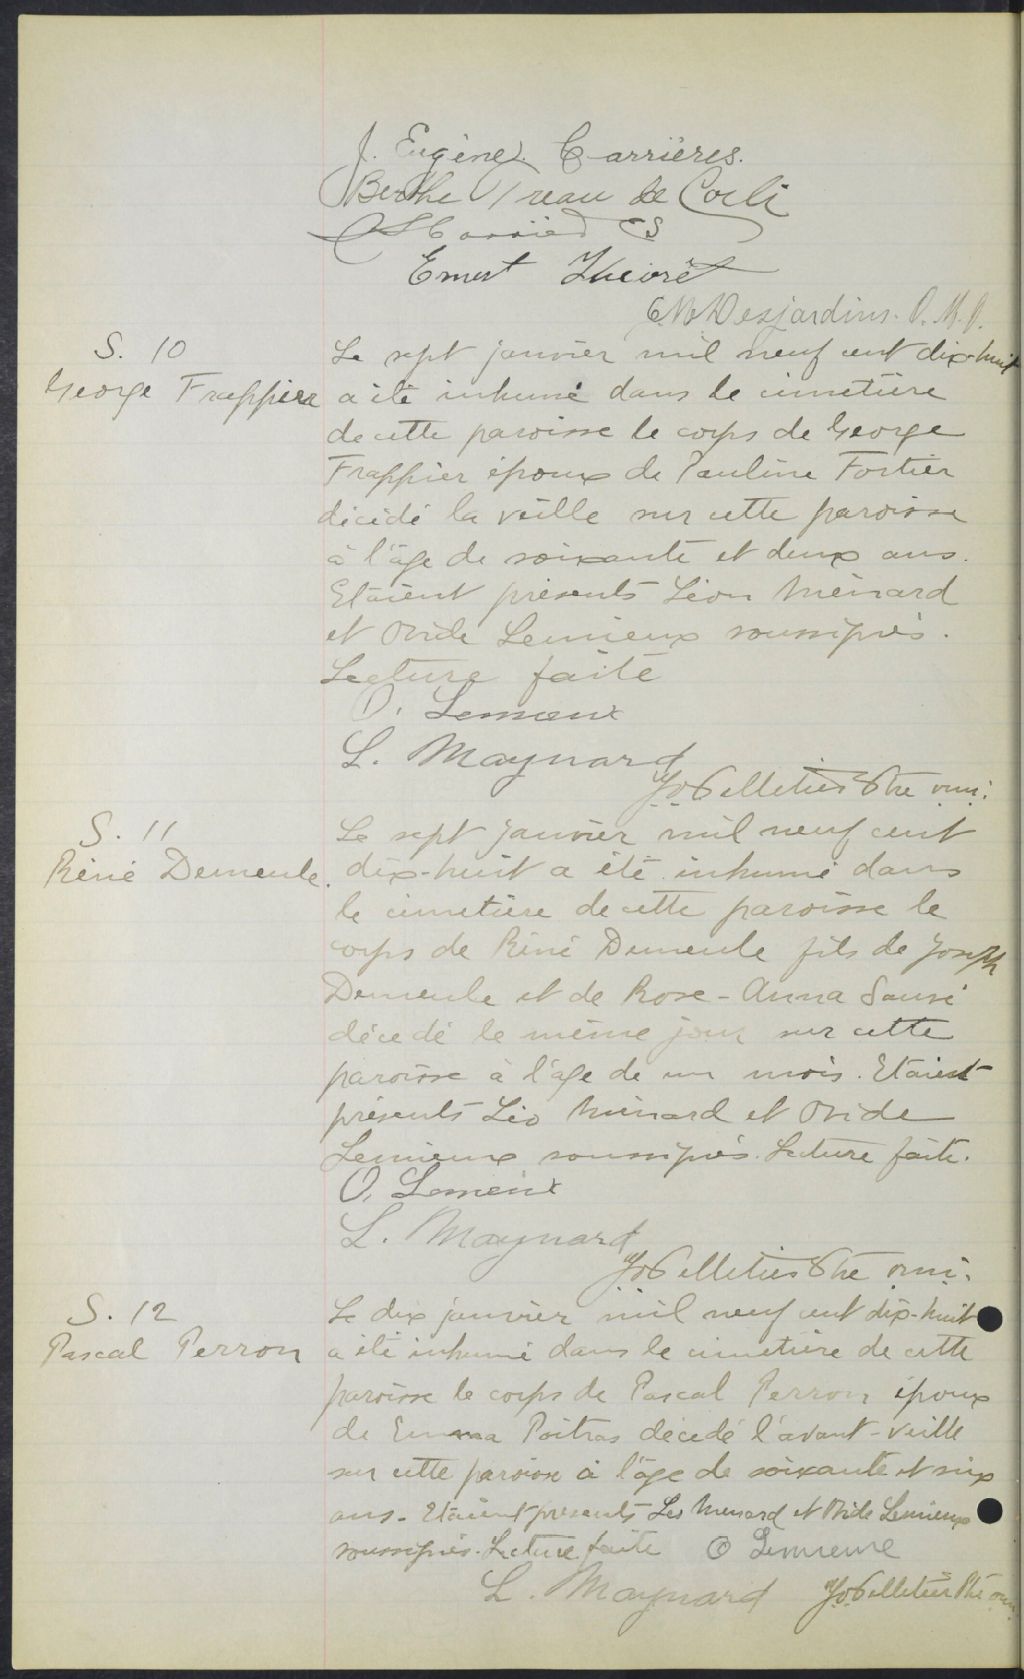 J. Eugène Carrières.
Berthe Treau de Coeli
Ernest Théorêt
Desjardins. O. M. I.
S. 10
George Frappier
Le sept janvier mil neuf cent dix-huit
a été inhumé dans le cimetière
de cette paroisse le corps de George
Frappier époux de Pauline Fortier
décédé la veille sur cette paroisse
à l'âge de soixante et deux ans.
Etaient présents Léon Ménard
et Ovide Lemieux soussignés.
Lecture faite
O. Lemieux
L. Maynard
Pelletier Ptre omi.
S. 11
Réné Demeule.
Le sept janvier mil neuf cent
dix-huit a été inhumé dans
le cimetière de cette paroisse le
corps de Réné Demeule fils de Joseph
Demeule et de Rose-Anna Sauvé
décédé le même jour sur cette
paroisse à l'âge de un mois. Etaient
présents Léo Ménard et Ovide
Lemieux soussignés. Lecture faite.
O. Lemeix
L. Maynard
Pelletier Ptre omi.
S. 12
Pascal Perron
Le dix janvier mil neuf cent dix-huit
a été inhumé dans le cimetière de cette
paroisse le corps de Pascal Perron époux
de Emma Poitras décédé l'avant-veille
sur cette paroisse à l'âge de soixante et six
ans. Etaient présents Léo Menard et Ovide Lemieux
soussignés. Lecture faite O Lemieux
L. Maynard Pelletier Ptre omi